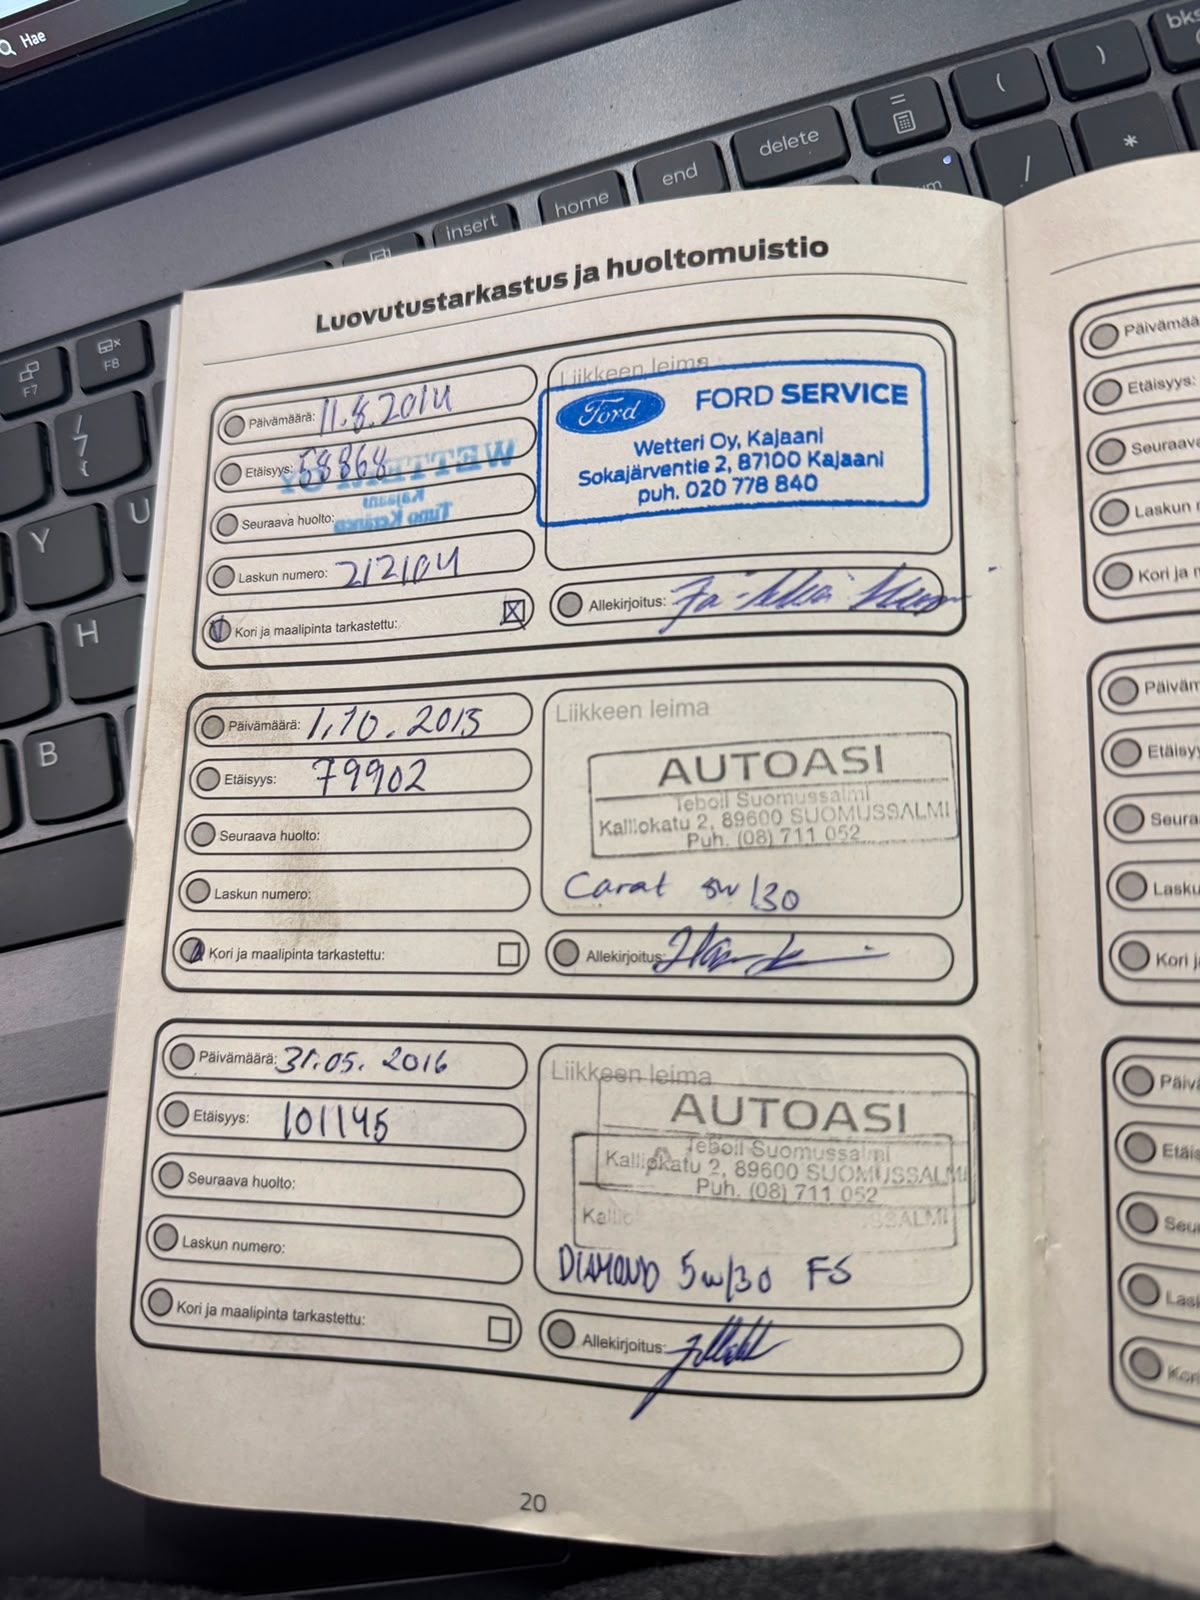 Hae
bks
)
(
=
delete
*
/
end
home
insert
F7
F8
/
7
{
Y
U
H
B
Luovutustarkastus ja huoltomuistio
Päivämäärä: 11.8.2014
Etäisyys: 58868
WETTERI OY
Kajaani
Timo Keränen
Seuraava huolto:
Laskun numero: 212104
Kori ja maalipinta tarkastettu:
Liikkeen leima
Ford FORD SERVICE
Wetteri Oy, Kajaani
Sokajärventie 2, 87100 Kajaani
puh. 020 778 840
Allekirjoitus:
Päivämäärä: 1.10.2015
Etäisyys: 79902
Seuraava huolto:
Laskun numero:
Kori ja maalipinta tarkastettu:
Liikkeen leima
AUTOASI
Teboil Suomussalmi
Kalliokatu 2, 89600 SUOMUSSALMI
Puh. (08) 711 052
Carat 5w/30
Allekirjoitus:
Päivämäärä: 31.05. 2016
Etäisyys: 101145
Seuraava huolto:
Laskun numero:
Kori ja maalipinta tarkastettu:
Liikkeen leima
AUTOASI
Teboil Suomussalmi
Kalliokatu 2, 89600 SUOMUSSALMI
Puh. (08) 711 052
Kallio SSALMI
DIAMOND 5w/30 FS
Allekirjoitus:
20
Päivämää
Etäisyys:
Seuraava
Laskun
Kori ja m
Päiväm
Etäisyy
Seura
Lasku
Kori j
Päivä
Etäis
Seu
Las
Kori